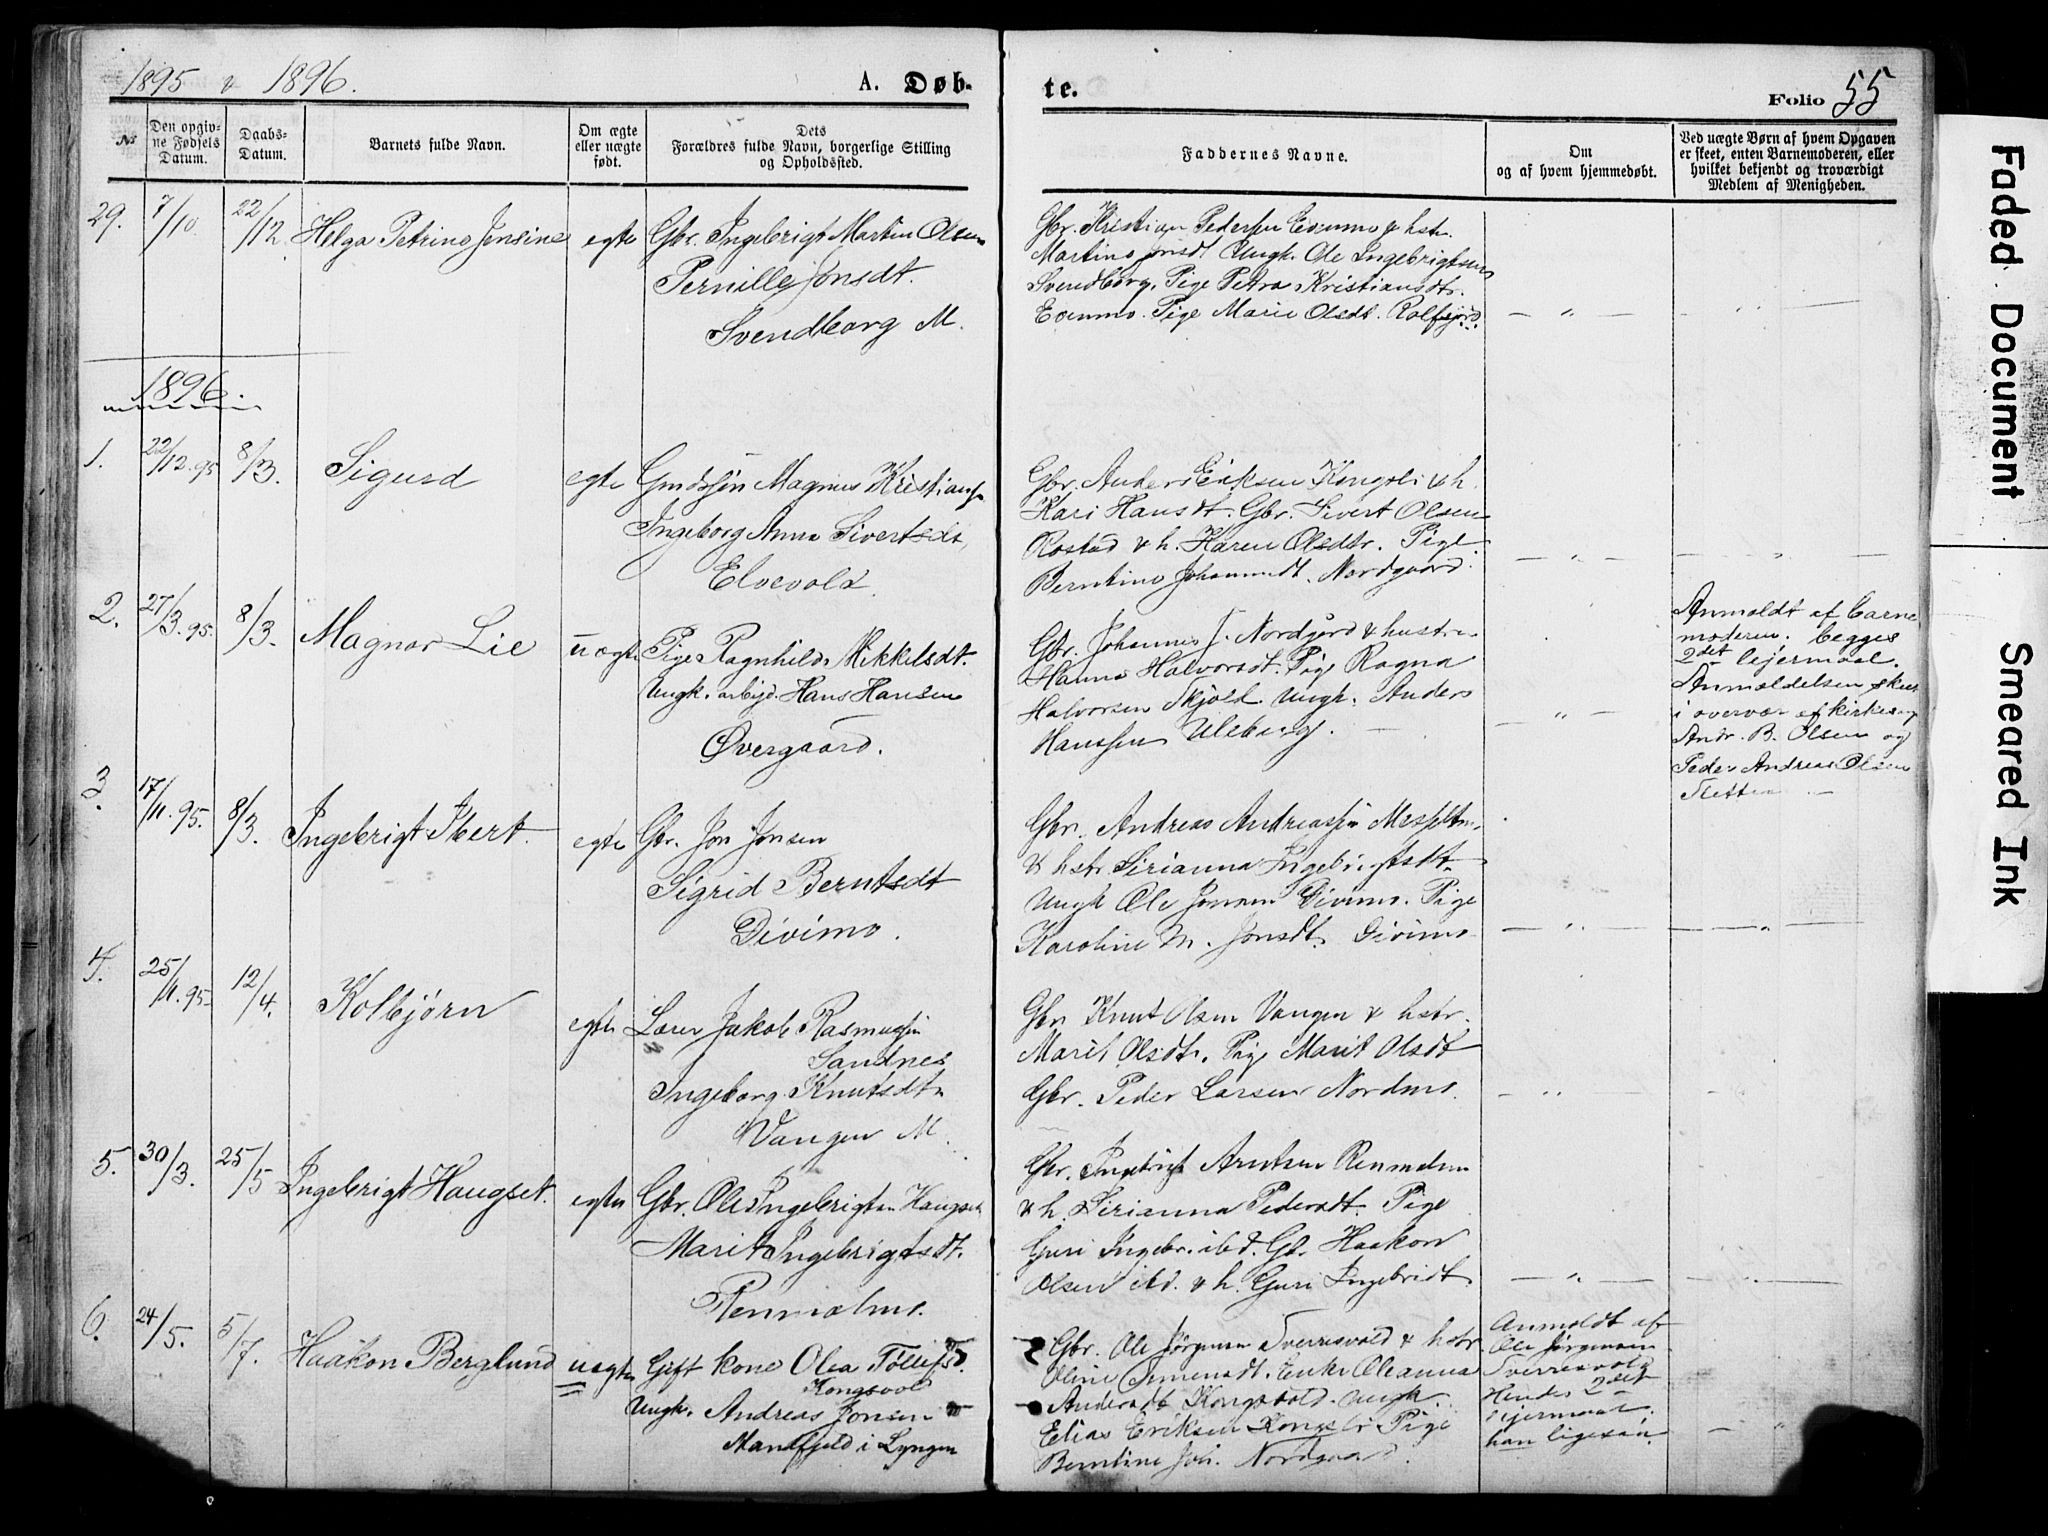 1895 & 1896.
A. Døb-
te.
Folio 55
No
Den opgiv-
ne Fødsels
Datum.
Daabs-
Datum.
Barnets fulde Navn.
Om ægte
eller uægte
født.
Dets
Forældres fulde Navn, borgerlige Stilling
og Opholdssted.
Faddernes Navne.
Om
og af hvem hjemmedøbt.
Ved uægte Børn af hvem Opgaven
er skeet, enten Barnemoderen, eller
hvilket bekjendt og troværdigt
Medlem af Menigheden.
29. 7/10. 22/12. Helga Petrine Jensine egte Gbr. Ingebrigt Martin Olsen
Pernille Jonsdt.
Svendborg M.
Gbr. Kristian Pedersen & hstr.
Martine Jonsdt Ungk. Ole Ingebrigtsen
Svendborg, Pige Petra Kristiansdtr.
Pige Marie Olsdt.
1896.
1. 22/12.95 8/3. Sigurd egte Magnus Kristians
Ingeborg Anna Sivertsdt,
Elvevold.
Gbr. Anders Eriksen Kongsli & h.
Kari Hansdt. Gbr. Sivert Olsen
Rostad & h. Karen Olsdtr. Pige
Berntine Johannesdt. Nordgaard.
2. 27/3.95. 8/3. Magnar Lie uægte Pige Ragnhild Mikkelsdt.
Ungk. arbejd. Hans Hansen
Øvergaard.
Gbr. Johannes J. Nordgård & hustru
Hanna Halvorsdt. Pige Ragna
Halvorsen Skjold. Ungk. Anders
Hanssen Uleberg.
Anmeldt af barne
moderen. begges
2det lejermaal.
Anmeldelsen skeet
i overvær af kirkesang
Andr. B. Olsen og
Peder Andreas Olsen
Sletten
3. 17/11.95. 8/3. Ingebrigt Ibert. egte Gbr. Jon Jonsen
Sigrid Berntsdt
Divimo.
Gbr. Andreas Andreassen
& hstr. Sirianna Ingebrigtsdt
Ungk Ole Jonsen Divimo. Pige
Karoline M. Jonsdt. Divimo
4. 25/11.95. 12/4. Kolbjørn egte Lærer Jakob Rasmussen
Sandnes
Ingeborg Knutsdt.
Vangen M.
Gbr. Knut Olsen Vangen & hstr.
Marit Olsdtr. Pige Marit Olsdt
Gbr. Peder Larsen Nordmo.
5. 30/3. 25/5 Ingebrigt Haugset. egte Gbr. Ole Ingebrigtsen Haugset
Marit Ingebrigtsdt.
Rennalmo.
Gbr. Ingebrigt Arntsen
& h. Sirianna Pedersdt. Pige
Guri Ingebr. ibd. Gb. Haakon
Olsen ibd. & h. Guri Ingebridt
6. 24/5. 5/7. Haakon Berglund uægte Gift kone Olea Tollefsd.
Kongsvold
Ungk. Andreas Jonsen
Mandfjeld i Lyngen
Gbr. Ole Jørgensen Sverresvold & hstr
Oline Simensdt. Enke Oleanna
Andersdt Kongsvold. Ungk.
Elias Eriksen Kongsli Pige
Berntine Joh. Nordgaard.
Anmeldt af
Ole Jørgensen
Sverresvold
Hendes 2det
lejermaal.
han ligesaa.
Faded Document
Smeared Ink